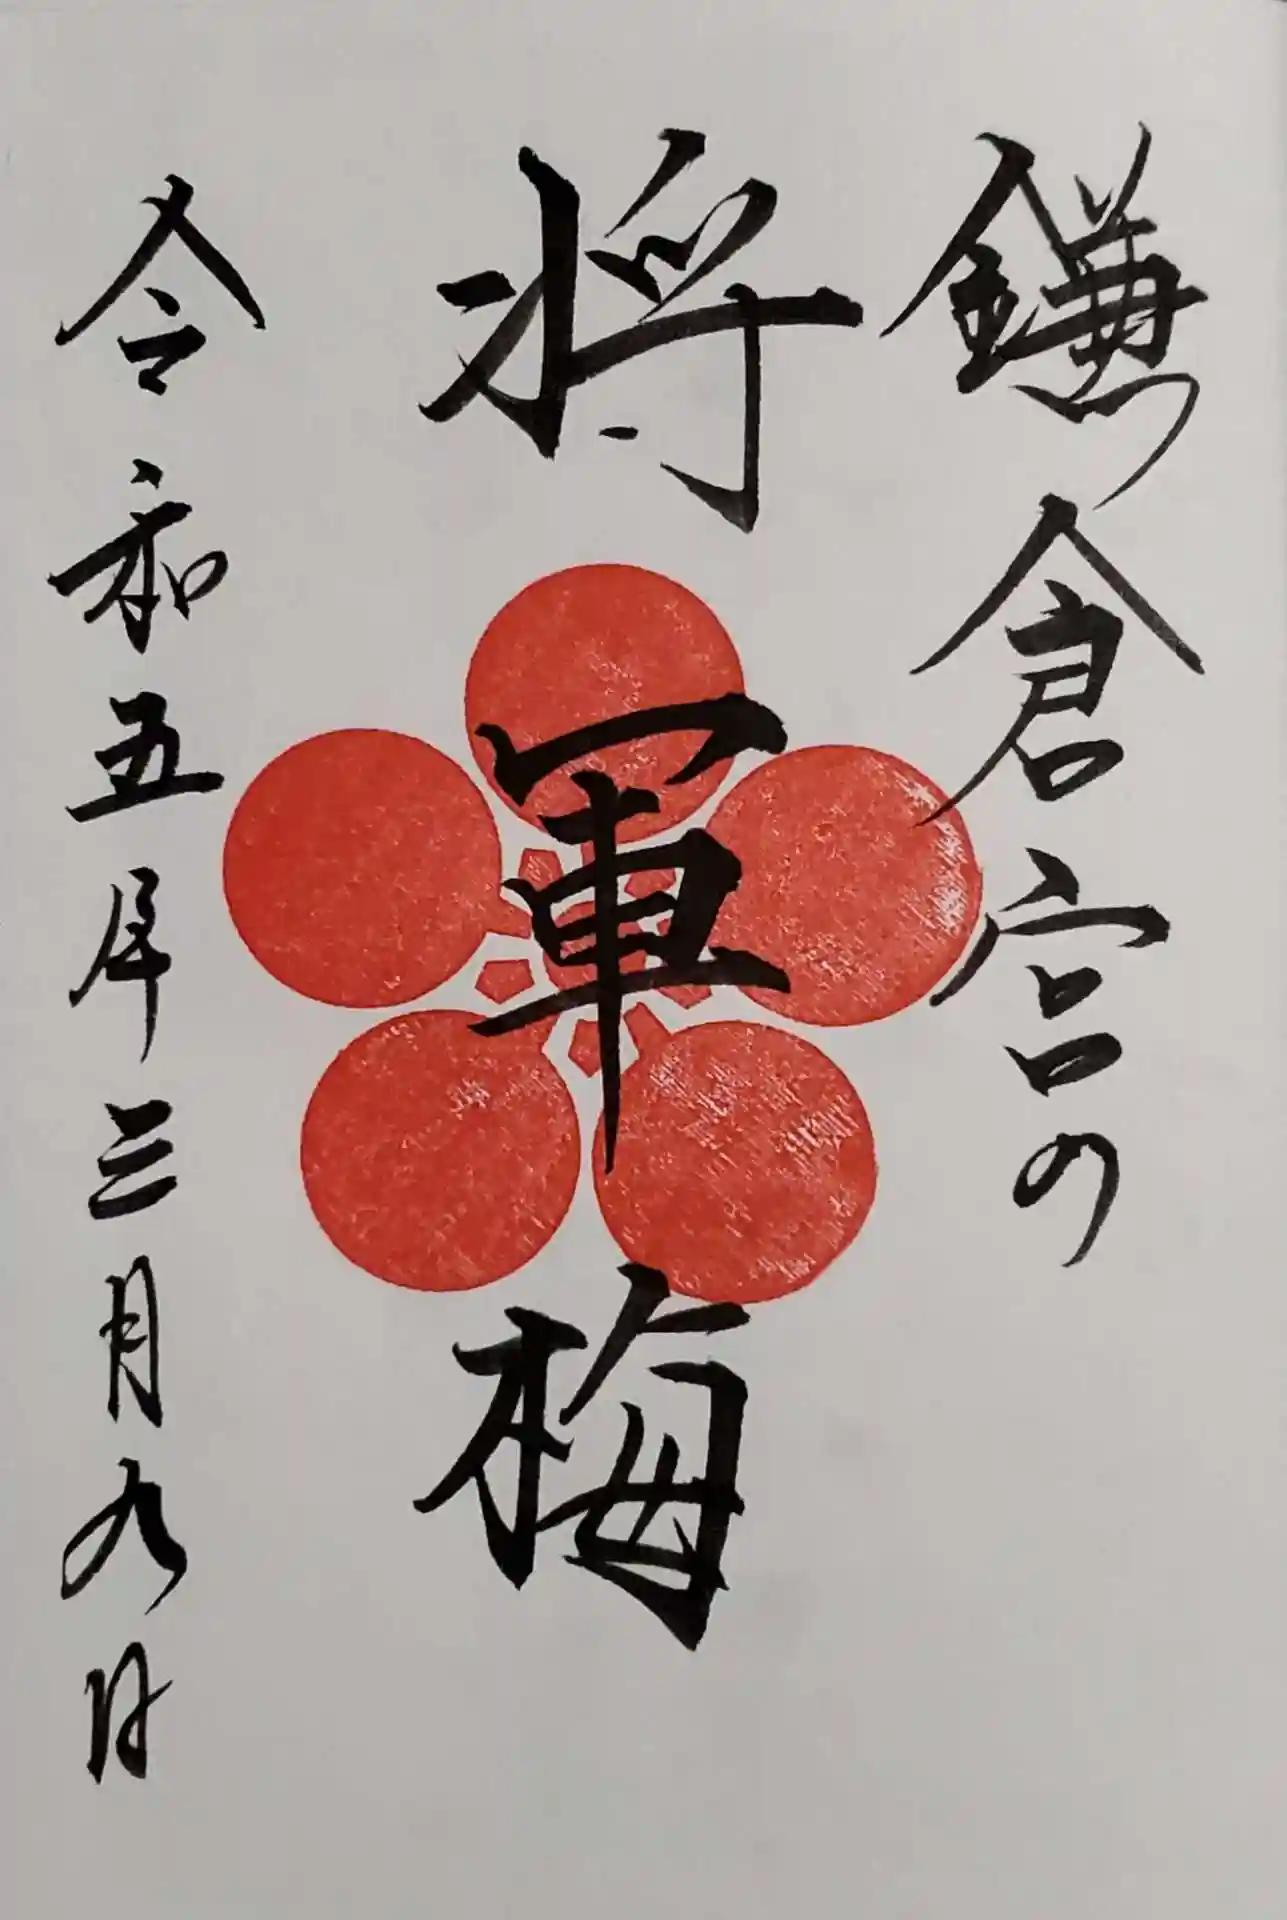 鎌倉宮の
将軍梅
令和五年三月九日